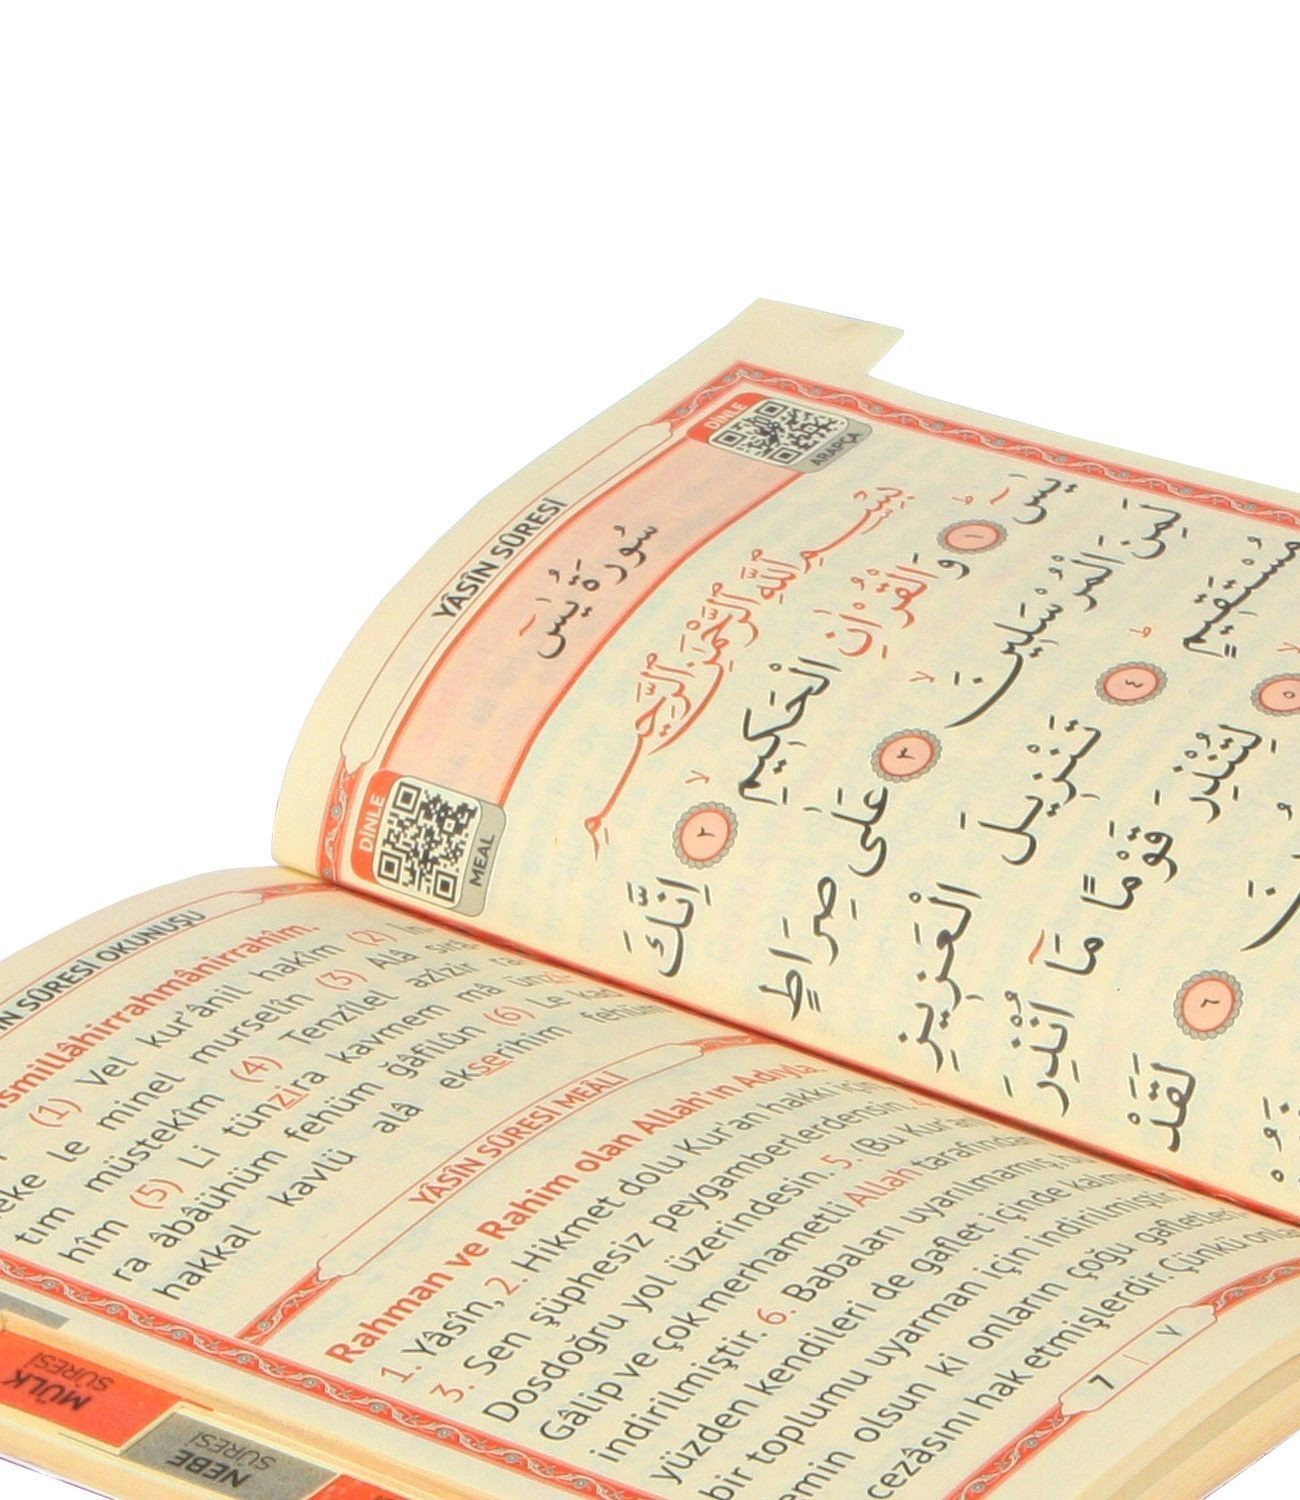 YÂSÎN SÛRESİ
DİNLE
ARAPÇA
سُورَةُ يٰسٓ
DİNLE
MEAL
بِسْمِ اللّٰهِ الرَّحْمٰنِ الرَّحِيمِ
يٰسٓ ١ وَالْقُرْاٰنِ الْحَكِيمِ ٢ اِنَّكَ
لَمِنَ الْمُرْسَلِينَ ٣ عَلٰى صِرَاطٍ
مُسْتَقِيمٍ ٤ تَنْزِيلَ الْعَزِيزِ
٥ لِتُنْذِرَ قَوْمًا مَٓا اُنْذِرَ
٦ لَقَدْ
SÛRESİ OKUNUŞU
(1) Vel kur'ânil hakîm (2) İn-
le minel murselîn (3) Alâ sırâ-
tım müstekîm (4) Tenzîlel azîzir ra-
hîm (5) Li tünzira kavmem mâ ünzi-
ra âbâühüm fehüm ğâfilûn (6) Le kad
hakkal kavlü alâ ekserihim fehüm
YÂSÎN SÛRESİ MEÂLİ
Rahman ve Rahim olan Allah'ın Adıyla.
1. Yâsîn, 2. Hikmet dolu Kur'an hakkı için
3. Sen şüphesiz peygamberlerdensin.
Dosdoğru yol üzerindesin. 5. (Bu Kur'an)
Gâlip ve çok merhametli Allah tarafından
indirilmiştir. 6. Babaları uyarılmamış,
yüzden kendileri de gaflet içinde
bir toplumu uyarman için indirilmiştir.
emin olsun ki onların çoğu gafletleri
cezâsını hak etmişlerdir. Çünkü
7 | ٧
MÜLK
SÛRESİ
NEBE
SÛRESİ